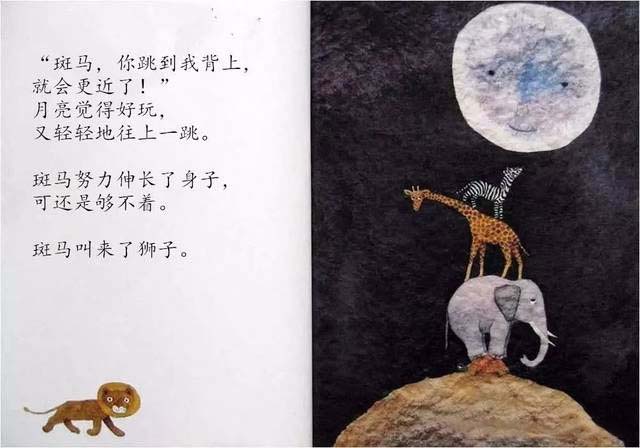 “斑马，你跳到我背上，
就会更近了！”
月亮觉得好玩，
又轻轻地往上一跳。
斑马努力伸长了身子，
可还是够不着。
斑马叫来了狮子。